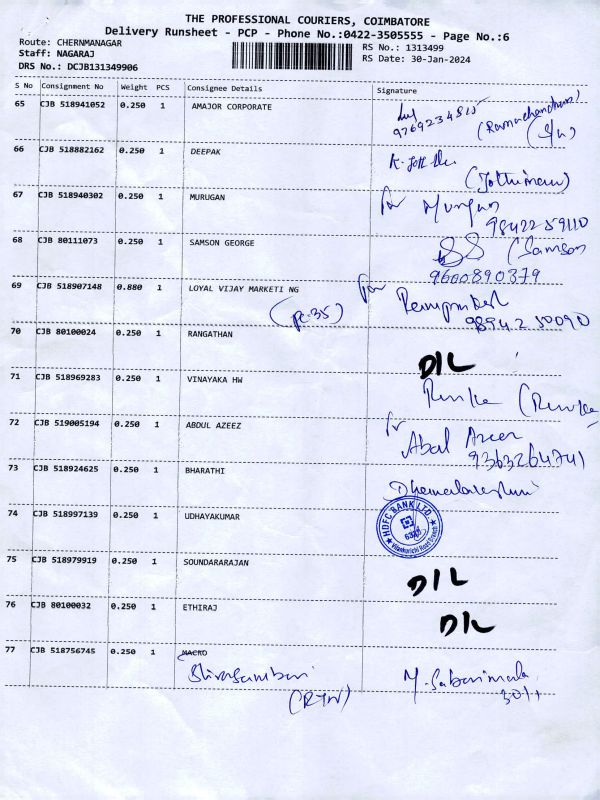 THE PROFESSIONAL COURIERS, COIMBATORE
Delivery Runsheet - PCP - Phone No.:0422-3505555 - Page No.:6
Route: CHERNMANAGAR
RS No.: 1313499
Staff: NAGARAJ
RS Date: 30-Jan-2024
DRS No.: DCJB131349906
S No Consignment No Weight PCS Consignee Details Signature
65 CJB 518941052 0.250 1 AMAJOR CORPORATE
9769234815 (Ramachandran)
66 CJB 518882162 0.250 1 DEEPAK
(Jothimani)
67 CJB 518940302 0.250 1 MURUGAN for Murugan
9842259110
68 CJB 80111073 0.250 1 SAMSON GEORGE (Samson
9600890379
69 CJB 518907148 0.880 1 LOYAL VIJAY MARKETI NG for
(pc-35) 9894230090
70 CJB 80100024 0.250 1 RANGATHAN D/L
71 CJB 518969283 0.250 1 VINAYAKA HW
72 CJB 519005194 0.250 1 ABOUL AZEEZ
Abal Azeer
9363264741
73 CJB 518924625 0.250 1 BHARATHI
74 CJB 518997139 0.250 1 UDHAYAKUMAR HDFC BANK LTD.
75 CJB 518979919 0.250 1 SOUNDARARAJAN D/L
76 CJB 80100032 0.250 1 ETHIRAJ D/L
77 CJB 518756745 0.250 1 MACRO
M. Sabarimala